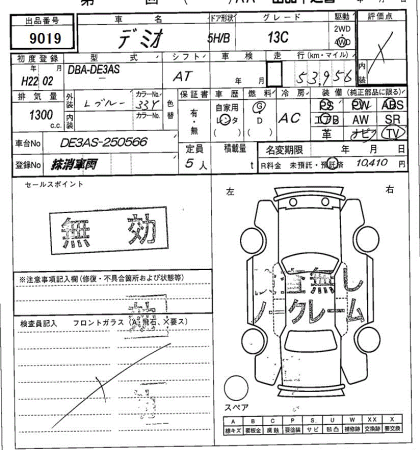 出品番号 車名 ドア形状 グレード 駆動 評価点
9019 デミオ 5H/B 13C 2WD
WD
初度登録 型式 シフト 車検 走行(km・マイル)
年 月
H22 02 DBA-DE3AS AT 年 月 53,956
排気量 外装 Lブルー カラーNo. 33Y 色替 保証書 車歴 燃料 冷房 装備(純正部品に限る)
1300 c.c. 内装 カラーNo. 有・無 自家用 レンタ ( ) G D ( ) AC PS PW ABS
エアB AW SR
革 ナビ TV
車台No DE3AS-250566 定員 積載量 名変期限 年 月 日
登録No 抹消車両 5人 t R料金 未預託・預託済 10,410 円
セールスポイント 左 右
無効
※注意事項記入欄(修復・不具合箇所および状態等)
無し
ノークレーム
検査員記入 フロントガラス(A、飛石、X要ス)
スペア
A B C P S U W X XX